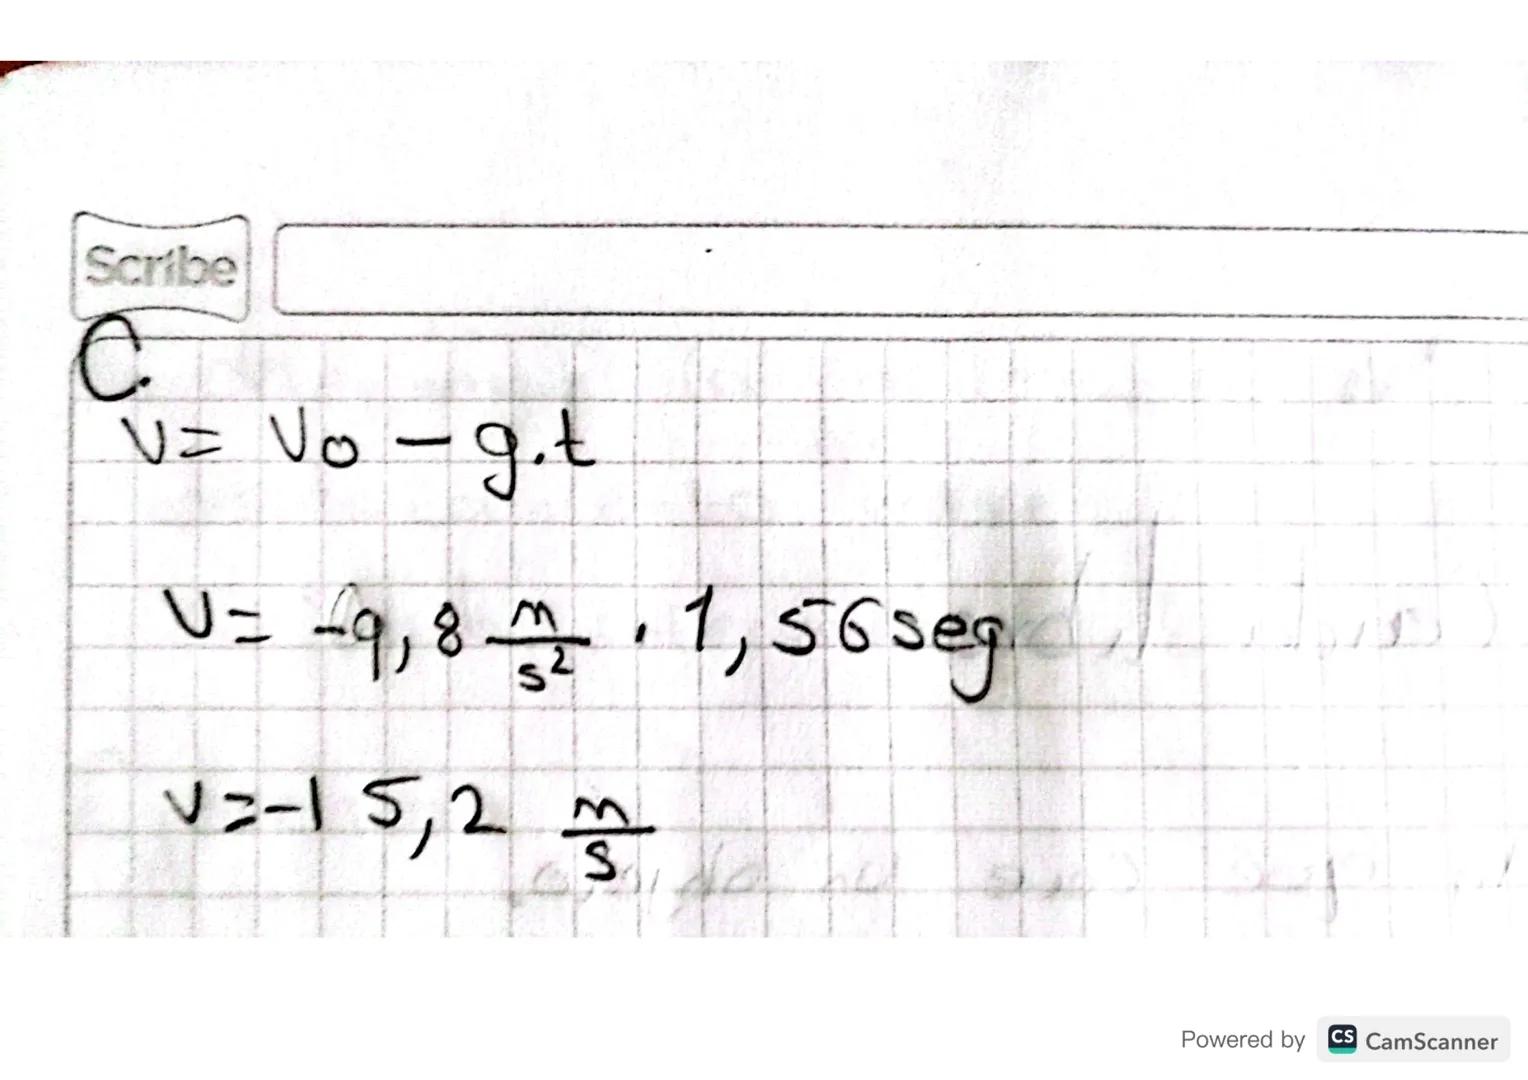 Scribe
C.
V = Vo - g.t
V = -9,8 m/s² . 1,56 seg
V = -15,2 m/s
Powered by CS CamScanner